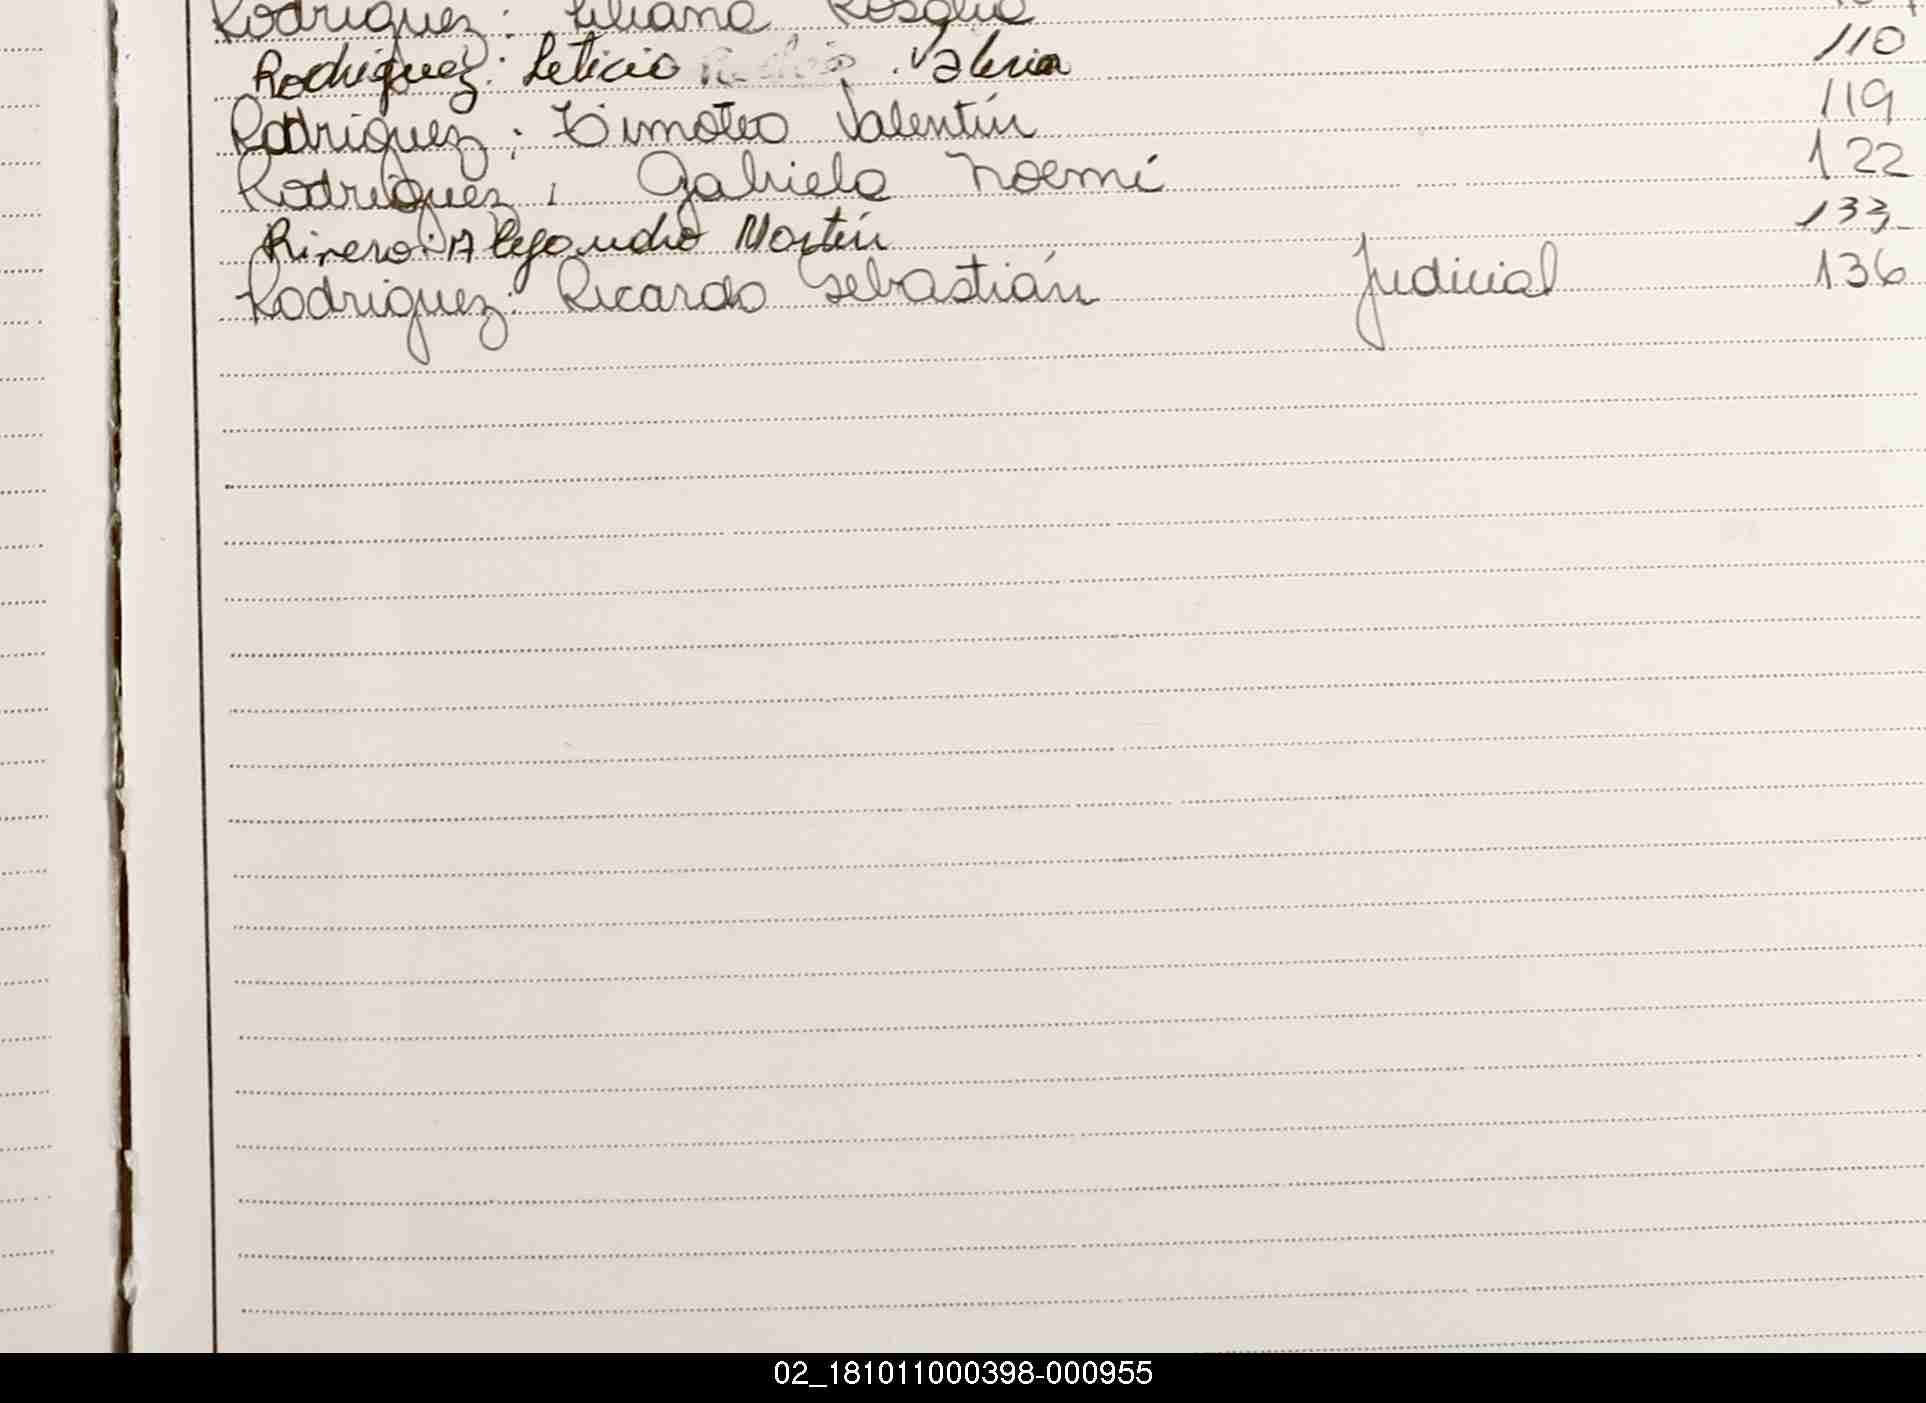 Rodriguez: Liliana Rosalia
Rodriguez: Leticia Valeria 110
Rodriguez: Timoteo Valentín 119
Rodriguez: Gabriela Noemí 122
Rivero: Alejandro Martín 133
Rodriguez: Ricardo Sebastián Judicial 136
02_181011000398-000955